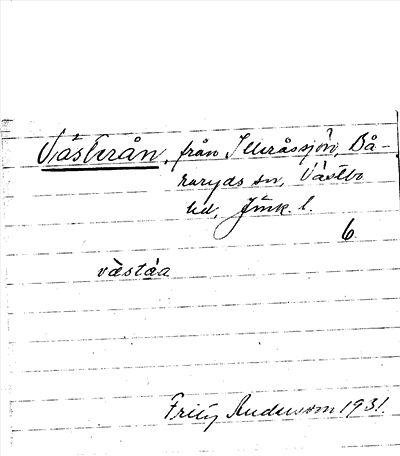 Västerån, från Illeråssjön, Bå-
raryds sn, Västbo
hd, Jönk. l.
6
västáa
Fritz Anderson 1931.